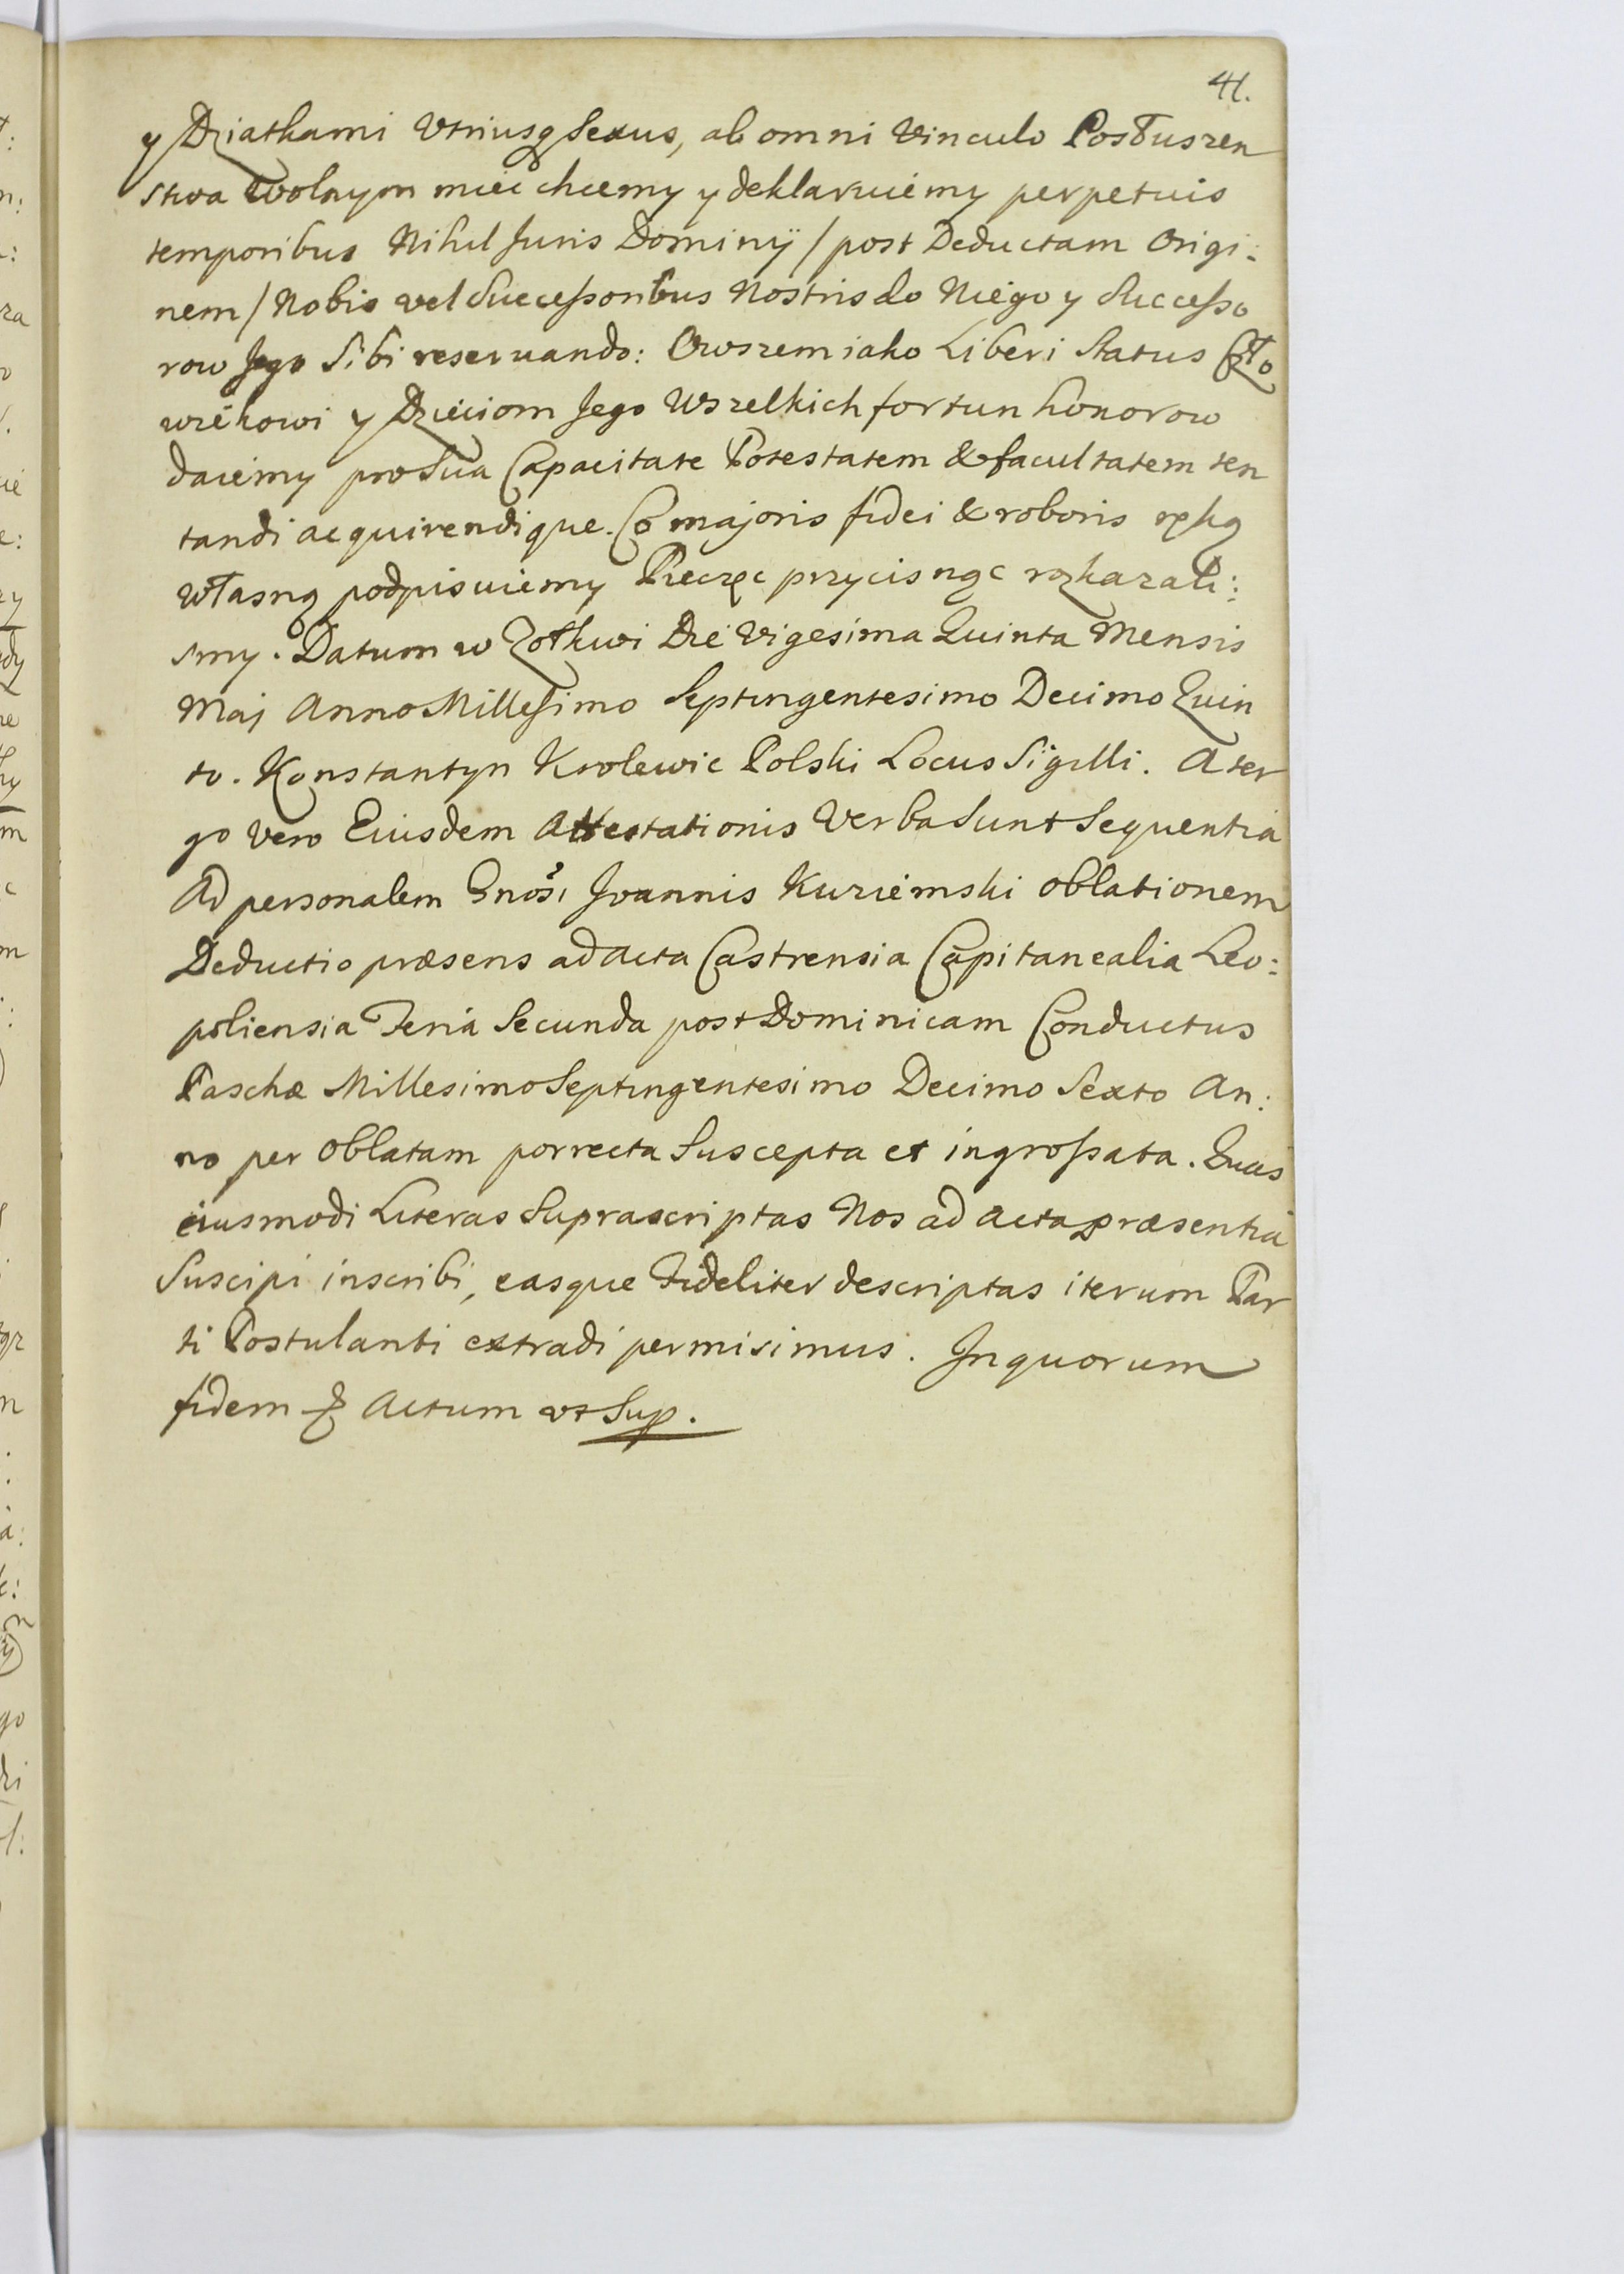 41.
y Dziatkami Vtriusq Sexus, ab omni Vinculo Posłuszen
stwa wolnym mieć chcemy y deklaruiemy perpetuis
temporibus Nihil Juris Dominÿ / post Deductam Origi:
nem / Nobis vel Successoribus Nostris do Niego y Successo
row Jego Sibi reservando: Owszem iako Liberi Status Czło
wiekowi y Dzieciom Jego Wszelkich fortun honorow
daiemy pro Sua Capacitate Potestatem & facultatem ten
tandi acquirendique. Co majoris fidei & roboris ręką
własną podpisuiemy Pieczęc przycisnąc rozkazali:
smy. Datum w Zołkwi Die Vigesima Quinta Mensis
Maj Anno Millesimo Septingentesimo Decimo Quin
to. Konstantyn Krolewic Polski Locus Sigilli. A ter
go vero Eiusdem Attestationis Verba Sunt Sequentia
Ad personalem Gnosi Joannis Kuziemski oblationem
Deductio præsens ad Acta Castrensia Capitanealia Leo:
poliensia Feria Secunda post Dominicam Conductus
Paschæ Millesimo Septingentesimo Decimo Sexto An:
no per Oblatam porrecta Suscepta et ingrossata. Quas
eiusmodi Literas Suprascriptas Nos ad Acta præsentia
Suscipi inscribi, easque Fideliter descriptas iterum Par
ti Postulanti extradi permisimus. In quorum
fidem & Actum vt Sup.